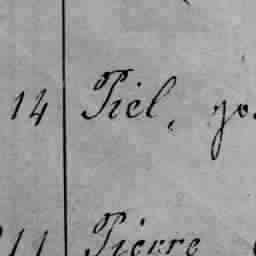 14 Piel, jo
11 Pierre